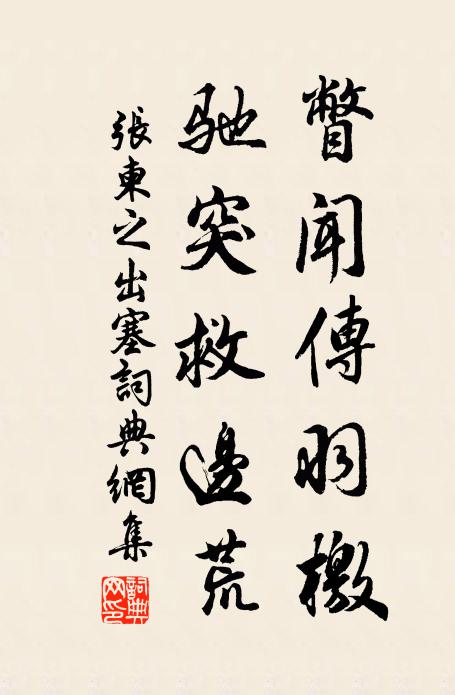 瞥聞傳羽檄
馳突救邊荒
張東之出塞詞典網集
詞典网印